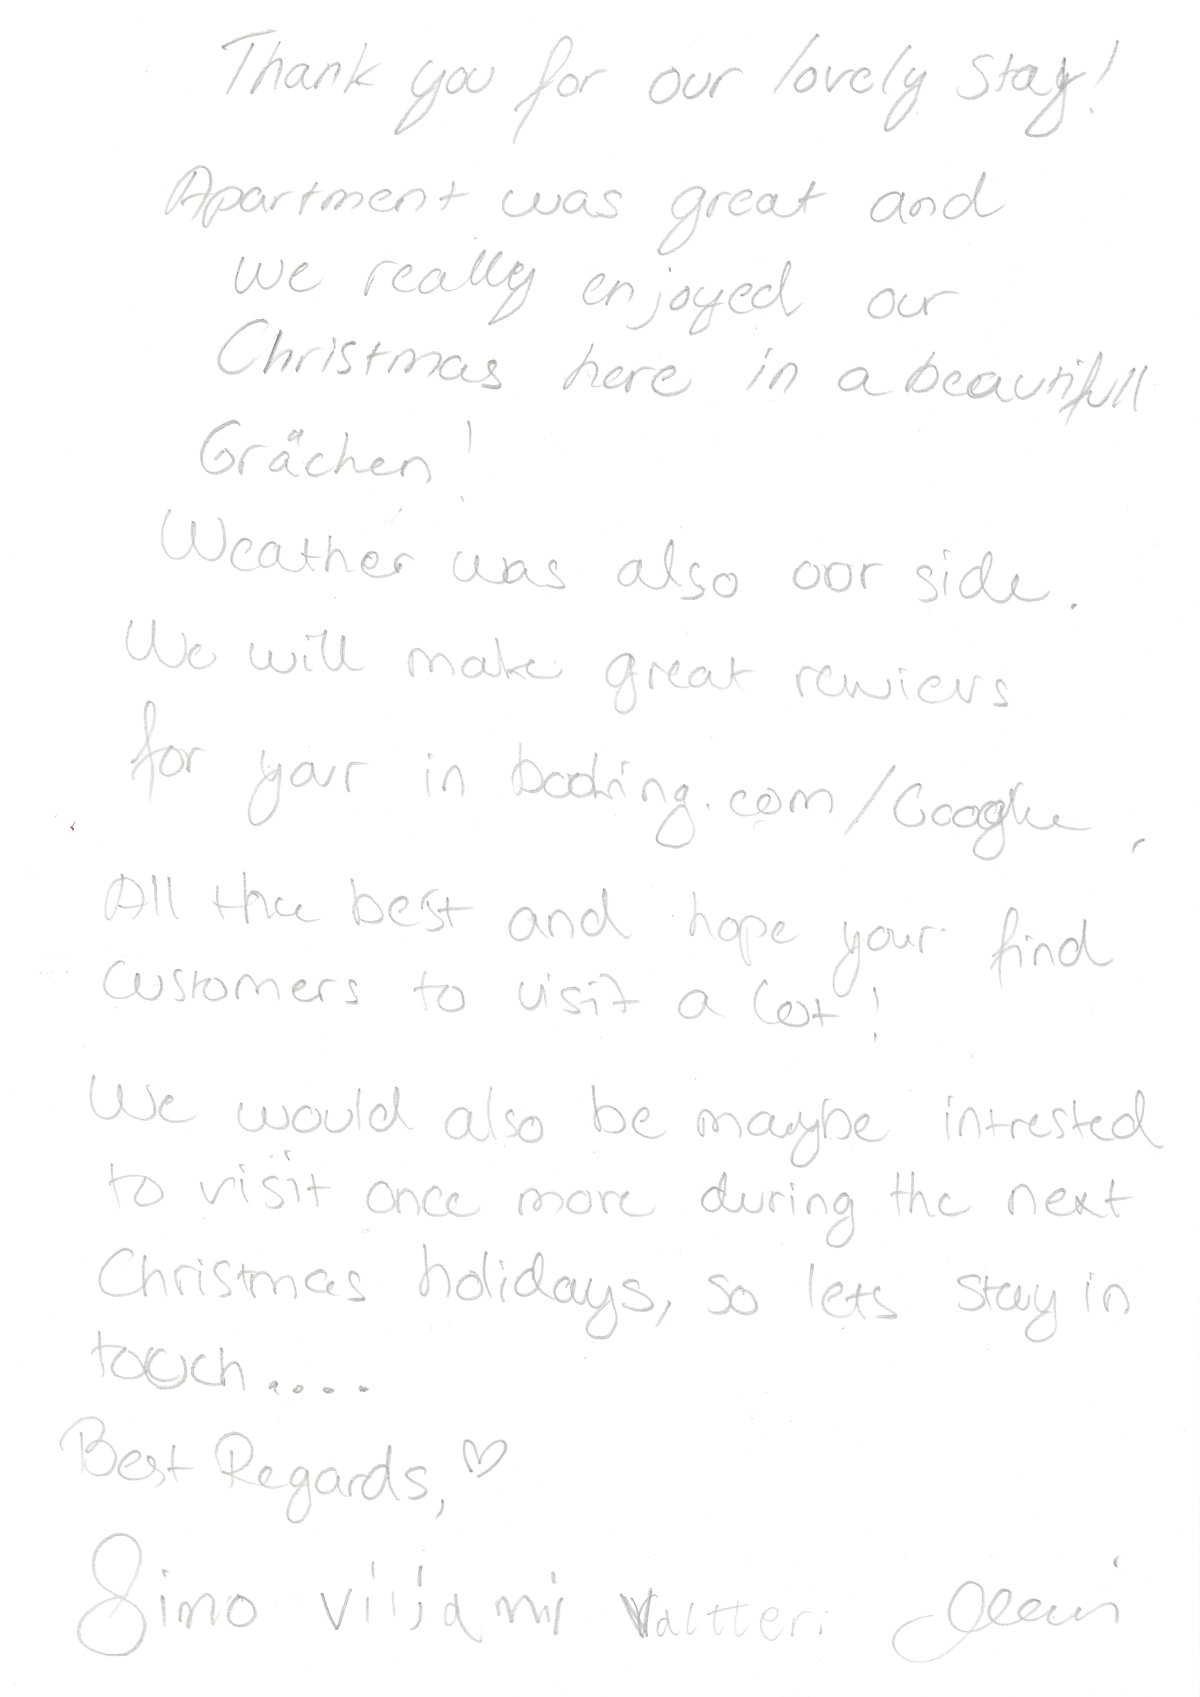 Thank you for our lovely stay!
Apartment was great and
we really enjoyed our
Christmas here in a beautifull
Grächen!
Weather was also our side.
We will make great rewievs
for your in booking.com/Google.
All the best and hope your find
customers to visit a lot!
We would also be maybe intrested
to visit once more during the next
Christmas holidays, so lets stay in
touch....
Best Regards, ♡
Simo Viljami Valtteri